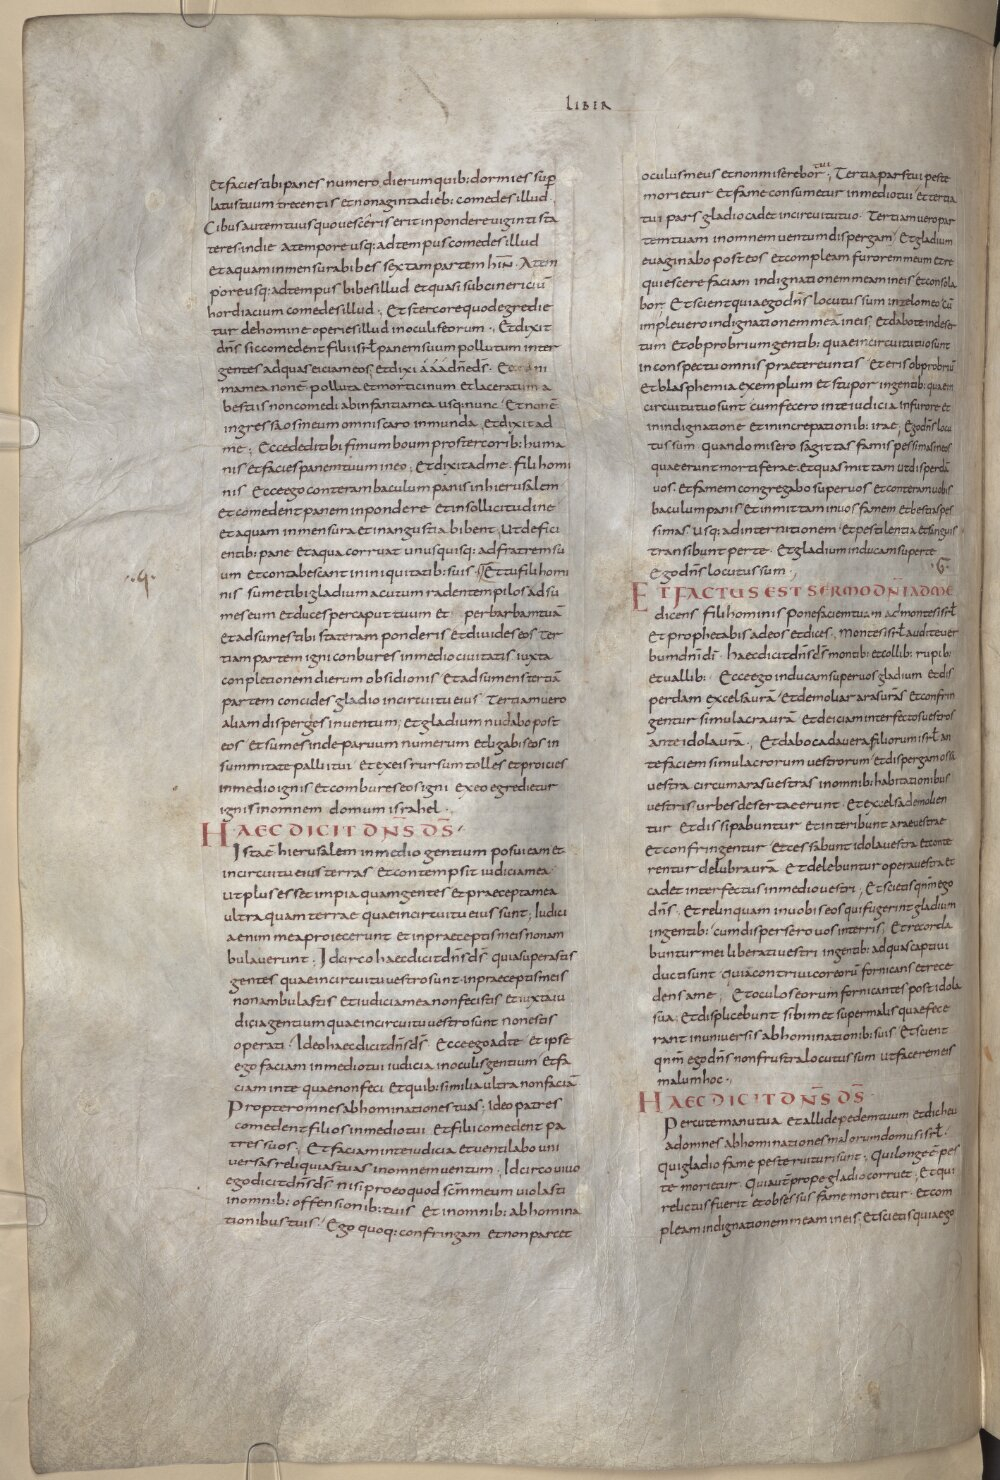 LIBER
Et facies tibi panes numero dierum quib: dormies sup
latus tuum trecentis et nonaginta dieb: comedes illud.
Cibus autem tuus quo vesceris erit in pondere viginti sta
teres in die a tempore usq: ad tempus comedes illud
et aquam in mensura bibes sextam partem hin. A tem
pore usq: ad tempus bibes illud et quasi subcinericiū
hordiacium comedes illud. Et stercore quod egredie
tur de homine operies illud in oculis eorum. Et dixit
dn̄s sic comedent filii isrƚ panem suum pollutum inter
gentes ad quas eiciam eos, et dixi a a a dn̄e ds̄. Ecce ani
ma mea non ē polluta et morticinum et laceratum a
bestiis non comedi ab infantia mea usq: nunc. Et non ē
ingressa os meum omnis caro inmunda, et dixit ad
me; Ecce dedi tibi fimum boum pro stercorib: huma
nis et facies panem tuum in eo; Et dixit ad me. Fili homi
nis Ecce ego conteram baculum panis in hierusalem
et comedent panem in pondere et in sollicitudine
et aquam in mensura et in angustia bibent, Ut defici
entib: pane et aqua corruat unusquisq: ad fratrem su
um et contabescant in iniquitatib: suis. Et tu fili homi
nis sume tibi gladium acutum radentem pilos adsu
mes eum et duces per caput tuum et per barbam tuā
et adsumes tibi stateram ponderis et divides eos ter
tiam partem igni conbures in medio civitatis iuxta
conpletionem dierum obsidionis Et adsumens tertiā
partem concides gladio in circuitu eius Tertiam vero
aliam disperges in ventum, et gladium nudabo post
eos et sumes inde parvum numerum et ligabis eos in
summitate pallii tui et ex eis rursum tolles et proicies
in medio ignis et combures eos igni ex eo egredietur
ignis in omnem domum israhel.
HAEC DICIT DN̄S DS̄
Ista ē hierusalem in medio gentium posui eam et
in circuitu eius terras et contempsit iudicia mea
ut plus esset impia quam gentes et praecepta mea
ultra quam terrae quae in circuitu eius sunt; Iudici
a enim mea proiecerunt et in praeceptis meis non am
bulaverunt. Idcirco haec dicit dn̄s ds̄ quia superastis
gentes quae in circuitu vestro sunt in praeceptis meis
non ambulastis et iudicia mea non fecistis et iuxta iu
dicia gentium quae in circuitu vestro sunt non estis
operati. Ideo haec dicit dn̄s ds̄ Ecce ego ad te et ipse
ego faciam in medio tui iudicia in oculis gentium et fa
ciam in te quae non feci et quib: similia ultra non faciā
Propter omnes abhominationes tuas, Ideo patres
comedent filios in medio tui et filii comedent pa
tres suos. Et faciam in te iudicia et ventilabo uni
versas reliquias tuas in omnem ventum. Idcirco vivo
ego dicit dn̄s ds̄ nisi pro eo quod scm̄ meum violasti
in omnib: offensionib: tuis Et in omnib: abhomina
tionibus tuis. Ego quoq: confringam et non parcet
.q.
oculus meus et non miserebor tui; Tertia pars tui peste
morietur et fame consumetur in medio tui et tertia
tui pars gladio cadet in circuitu tuo. Tertiam vero par
tem tuam in omnem ventum dispergam Et gladium
evaginabo post eos et compleam furorem meum et re
quiescere faciam indignationem meam in eis et consola
bor, Et scient quia ego dn̄s locutus sum in zelo meo cū
implevero indignationem meā in eis, et dabo te in deser
tum et obprobrium gentib: quae in circuitu tuo sunt
in conspectu omnis praetereuntis Et eris obprobriū
et blasphemia exemplum et stupor in gentib: quae in
circuitu tuo sunt cum fecero in te iudicia in furore et
in indignatione et in increpationib: irae; Ego dn̄s locu
tus sum quando misero sagittas famis pessimas in eos
quae erunt mortiferae et quas mittam ut disperdā
vos. Et famem congregabo super vos et conteram vobis
baculum panis et inmittam in vos famem et bestias pes
simas usq: ad internitionem et pestilentia et sanguis
transibunt per te. Et gladium inducam super te
Ego dn̄s locutus sum;
.G.
ET FACTUS EST SERMO DN̄I AD ME
dicens fili hominis pone faciem tuam ad montes isrƚ
et prophetabis ad eos et dices, montes isrƚ audite ver
bum dn̄i dī. Haec dicit dn̄s ds̄ montib: et collib: rupib:
et vallib: Ecce ego inducam super vos gladium et dis
perdam excelsa vrā Et demoliar aras vrās et confrin
gentur simulacra vrā Et deiciam interfectos vestros
ante idola vrā. Et dabo cadavera filiorum isrƚ an
te faciem simulacrorum vestrorum et dispergam ossa
vestra circum aras vestras in omnib: habitationibus
vestris urbes desertae erunt Et excelsa demolien
tur Et dissipabuntur et interibunt arae vestrae
et confringentur Et cessabunt idola vestra et conte
rentur delubra vrā Et delebuntur opera vestra et
cadet interfectus in medio vestri, Et scietis qnm̄ ego
dn̄s. Et relinquam in vobis eos qui fugerint gladium
in gentib: cum dispersero vos in terris, Et recorda
buntur mei liberati vestri in gentib: ad quas captivi
ducti sunt quia contrivi cor eorū fornicans et rece
dens a me; Et oculos eorum fornicantes post idola
sua. Et displicebunt sibimet super malis quae fece
rant in universis abhominationib: suis Et scient
qnm̄ ego dn̄s non frustra locutus sum ut facerem eis
malum hoc.
HAEC DICIT DN̄S DS̄
Percute manu tua et allide pedem tuum et dic heu
ad omnes abhominationes malorum domus isrƚ.
Qui gladio fame peste ruituri sunt. Qui longe ē pes
te morietur. Qui aut̄ prope gladio corruet, et qui
relictus fuerit et obsessus fame morietur. Et com
pleam indignationem meam in eis. Et scietis quia ego